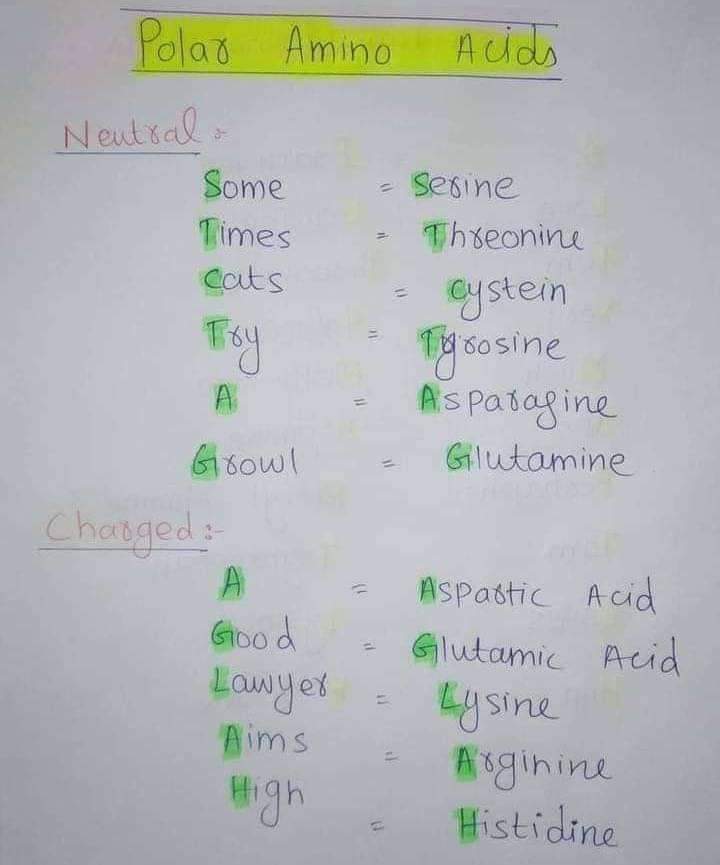 Polar Amino Acids
Neutral :-
Some = Serine
Times = Threonine
Cats = Cystein
Try = Tyrosine
A = Asparagine
Growl = Glutamine
Charged :-
A = Aspartic Acid
Good = Glutamic Acid
Lawyer = Lysine
Aims = Arginine
High = Histidine